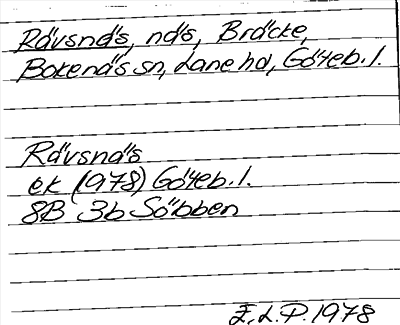 Rävsnäs, näs, Bräcke,
Bokenäs sn, Lane hd, Göteb. l.
Rävsnäs
ek (1978) Göteb. l.
8B 3b Söbben
E.L.P. 1978